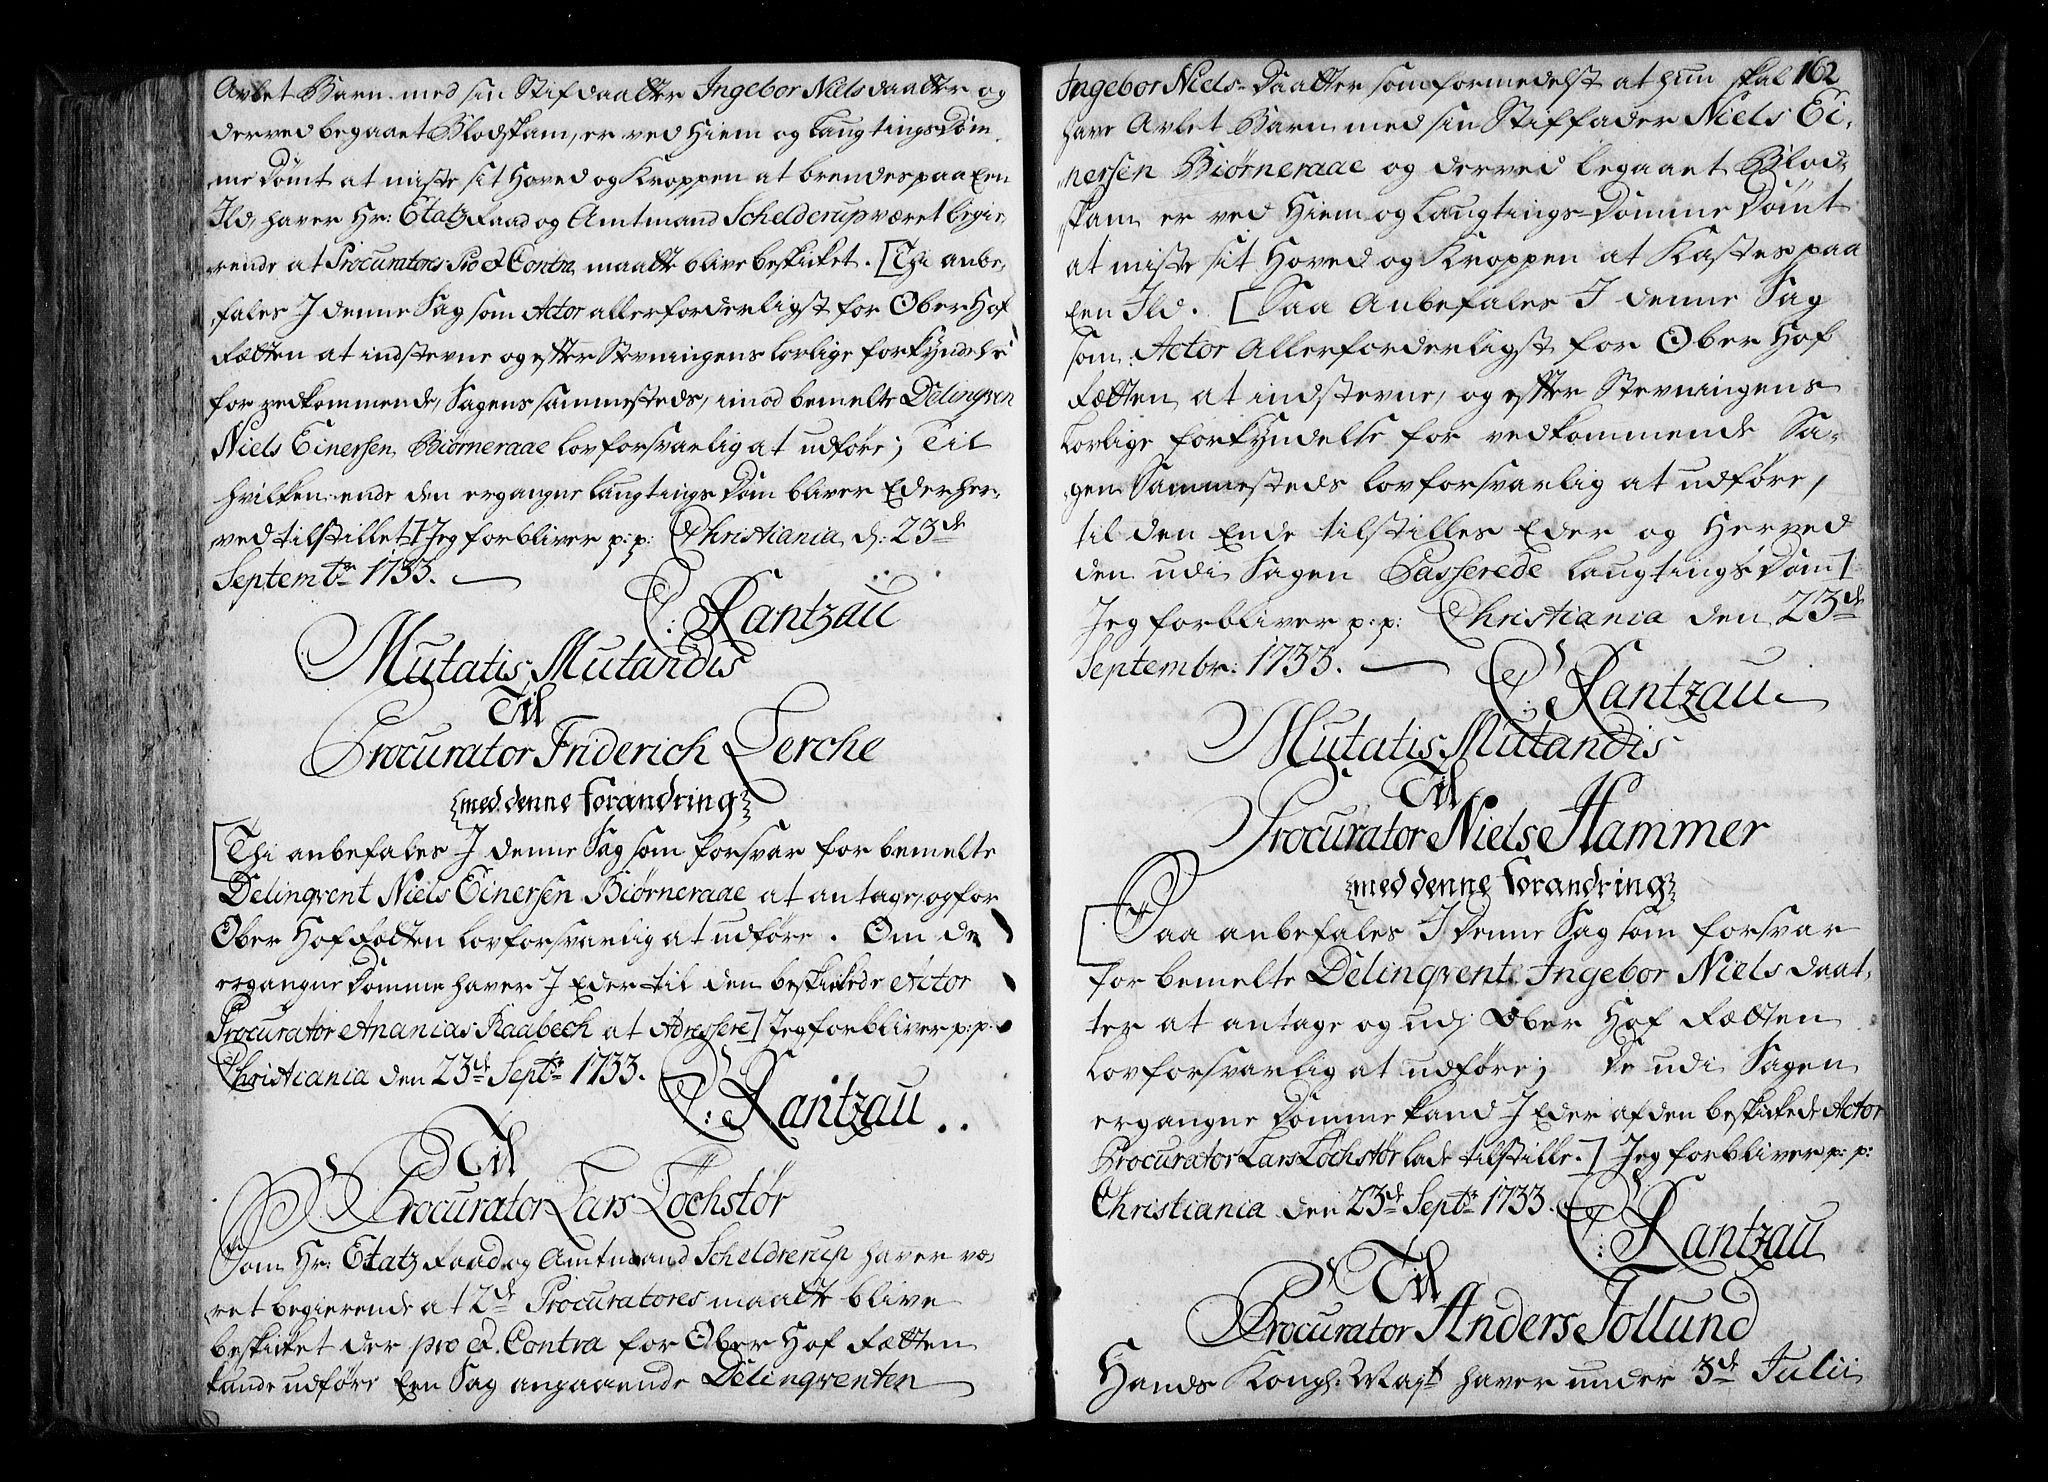 Avlet Barn med sin Stifdaatter Ingebor Nielsdaatter og
derved begaaet Blodskam, er ved Hiem og Laugtings Døm,
me Dømt at miste sit Hoved og Kroppen at brendes paa Een
Ild, haver Hr: Etatz Raad og Amtmand Schelderup været begie,
rende at Procuratores Pro & Contra maatte blive beskicket. [Thi anbe,
fales I denne Sag som Actor allerforderligst for Ober Hof
Rætten at indstevne og efter Stevningens lovlige forkyndelse
for vedkommende, Sagens sammesteds, imod bemelte Delinqven
Niels Einersen Biørneraae lovforsvarlig at udføre; Til
hvilken ende den ergangne Laugtings Dom bliver Eder her,
ved tilstillet] Jeg forbliver p: p: Christiania d: 23de
Septembr 1733.
C: Rantzau
Mutatis Mutandis
Til
Procurator Friderich Lerche
{med denne forandring}
[Thi anbefales I denne Sag som forsvar for bemelte
Delinqvent Niels Einersen Biørneraae at antage, og for
Ober Hof Rætten lovforsvarlig at udføre. Om de
ergangne Domme haver I Eder til den beskickede Actor
Procurator Ananias Raabech at Adressere] Jeg forbliver p: p:
Christiania den 23de Septr 1733.
C: Rantzau
Til
Procurator Lars Löchstør
Som Hr: Etatz Raad og Amtmand Scheldrerup haver væ,
ret begierende at 2de Procuratores maatte blive
beskicket der pro et Contra for Ober Hof Rætten
kunde udføre Een Sag angaaende Delinqventen
162
Ingebor Niels-Daatter som formedelst at hun skal
have Avlet Barn med sin Stiffader Niels Ei,
nersen Biørneraae og derved begaaet Blod,
skam er ved Hiem og Laugtings-Domme Dømt
at miste sit Hoved og Kroppen at Kastes paa
Een Ild. [Saa Anbefales I denne Sag
som Actor Allerforderligst for Ober Hof
Rætten at indstevne, og efter Stevningens
Lovlige forkyndelse for vedkommende Sa,
gen Sammesteds lovforsvarlig at udføre,
til den Ende tilstilles Eder og Herved
den udi Sagen Passerede Laugtings Dom]
Jeg forbliver p: p: Christiania den 23de
Septembr: 1733.
C: Rantzau
Mutatis Mutandis
Til
Procurator Niels Hammer
{med denne forandring}
[Saa anbefales I Denne Sag som forsvar
for bemelte Delinqvent Ingebor Nielsdaat,
ter at antage og udj Ober Hof Rætten
Lovforsvarlig at udføre; De udi Sagen
ergangne Domme kand I Eder af den beskickede Actor
Procurator Lars Löchstør lade tilstille.] Jeg forbliver p: p:
Christiania den 23de Septr 1733.
C: Rantzau
Til
Procurator Anders Jollund
Hands Kongl: Mayt haver under 3de Julii